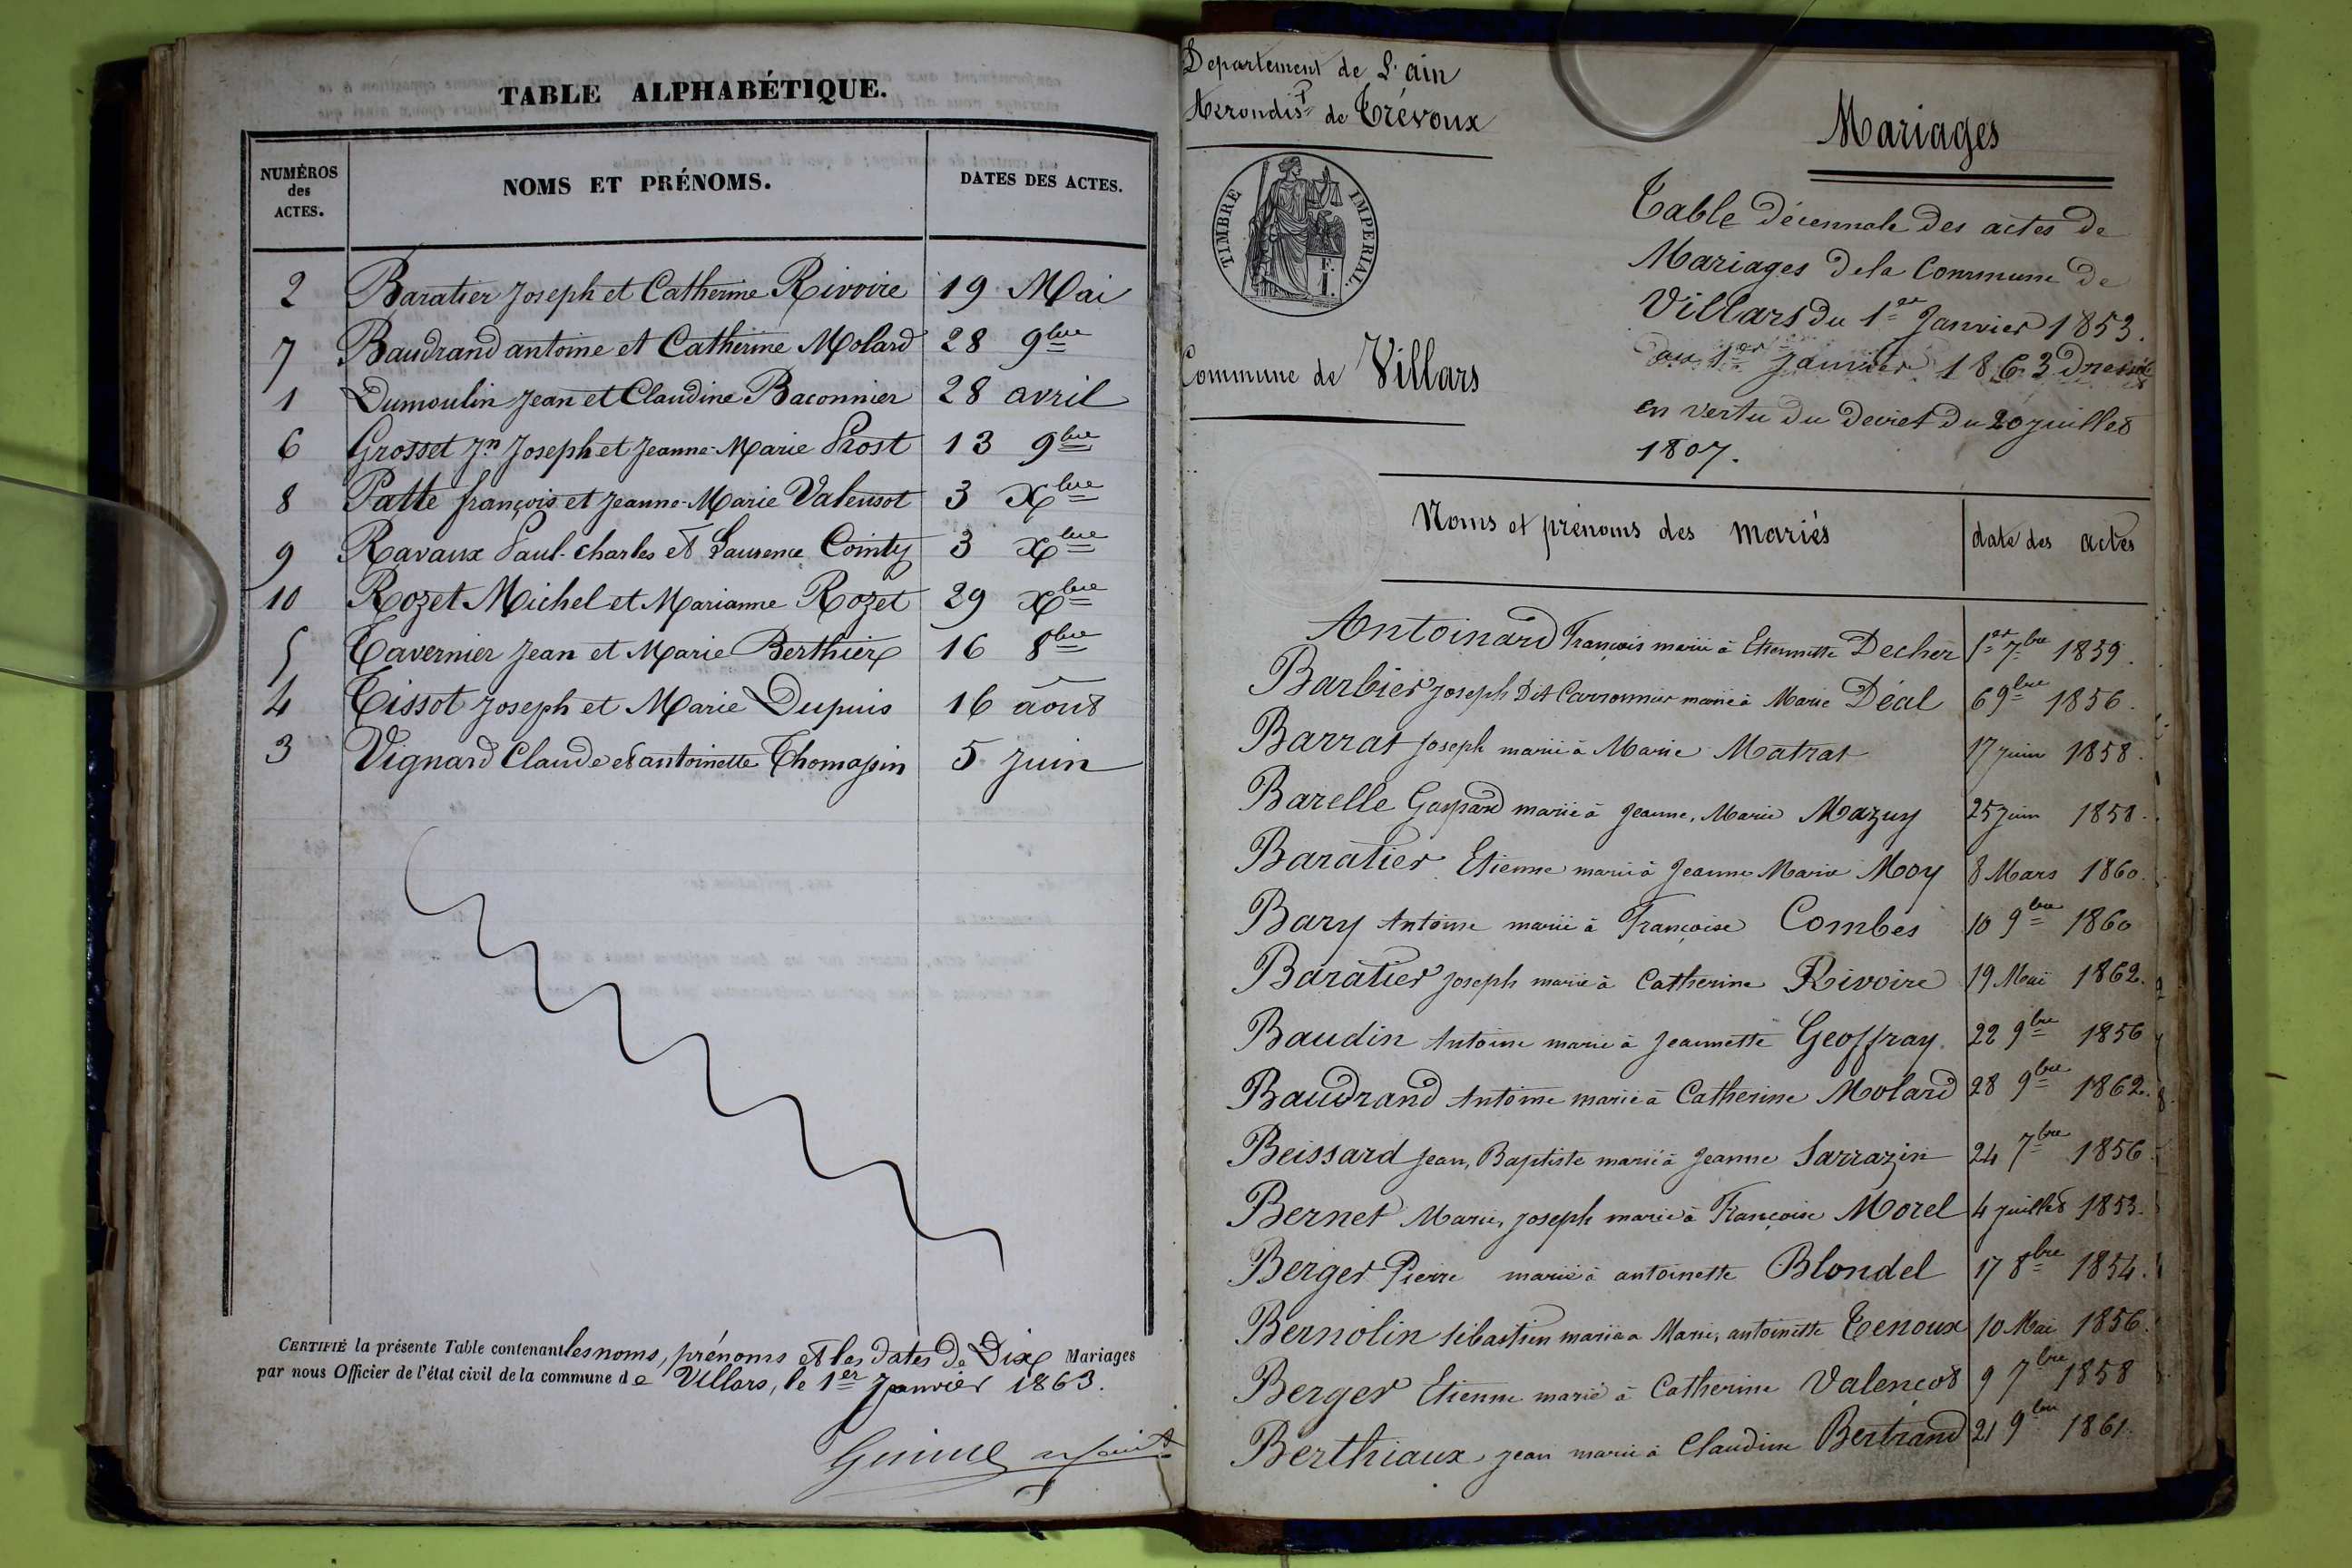 TABLE ALPHABÉTIQUE.
NUMÉROS des ACTES. NOMS ET PRÉNOMS. DATES DES ACTES.
2 Baratier Joseph et Catherine Rivoire 19 Mai
7 Baudrand antoine et Catherine Molard 28 9bre
1 Dumoulin Jean et Claudine Baconnier 28 avril
6 Grosset Jn Joseph et Jeanne-Marie Prost 13 9bre
8 Patte françois et Jeanne-Marie Valensot 3 Xbre
9 Ravaux Paul-charles et Laurence Cointy 3 Xbre
10 Rozet Michel et Marianne Rozet 29 Xbre
5 Tavernier Jean et Marie Berthier 16 8bre
4 Tissot Joseph et Marie Dupuis 16 août
3 Vignard Claude et antoinette Thomassin 5 Juin
CERTIFIÉ la présente Table contenant les noms, prénoms et les dates de Dix Mariages
par nous Officier de l'état civil de la commune de Villars, le 1er Janvier 1863.
Departement de L'ain
Arrondist de Trévoux
TIMBRE IMPERIAL
Commune de Villars
Mariages
Table décennale des actes de
Mariages de la Commune de
Villars du 1er Janvier 1853.
au 1er Janvier 1863 Dressée
en vertu du decret du 20 juillet
1807.
Noms et prénoms des mariés date des actes
Antoinard François marié à Etiennette Decher 1er 7bre 1859.
Barbier Joseph Dit Carronnier marié à Marie Déal 6 9bre 1856.
Barrat Joseph marié à Marie Matrat 17 juin 1858.
Barelle Gaspard marié à Jeanne, Marie Mazuy 25 Juin 1858.
Baratier Etienne marié à Jeanne Marie Moy 8 Mars 1860.
Bary Antoine marié à Françoise Combes 10 9bre 1860
Baratier Joseph marié à Catherine Rivoire 19 Mai 1862.
Baudin Antoine marié à Jeannette Geoffray. 22 9bre 1856
Baudrand Antoine marié à Catherine Molard 28 9bre 1862.
Beissard Jean, Baptiste marié à Jeanne Sarrazin 24 7bre 1856
Bernet Marie, Joseph marié à Françoise Morel 4 juillet 1853.
Berger Pierre marié à antoinette Blondel 17 8bre 1854.
Bernolin Sébastien marié a Marie, antoinette Tenoux 10 Mai 1856.
Berger Etienne marié à Catherine Valencot 9 7bre 1858
Berthiaux Jean marié à Claudine Bertrand 21 9bre 1861.